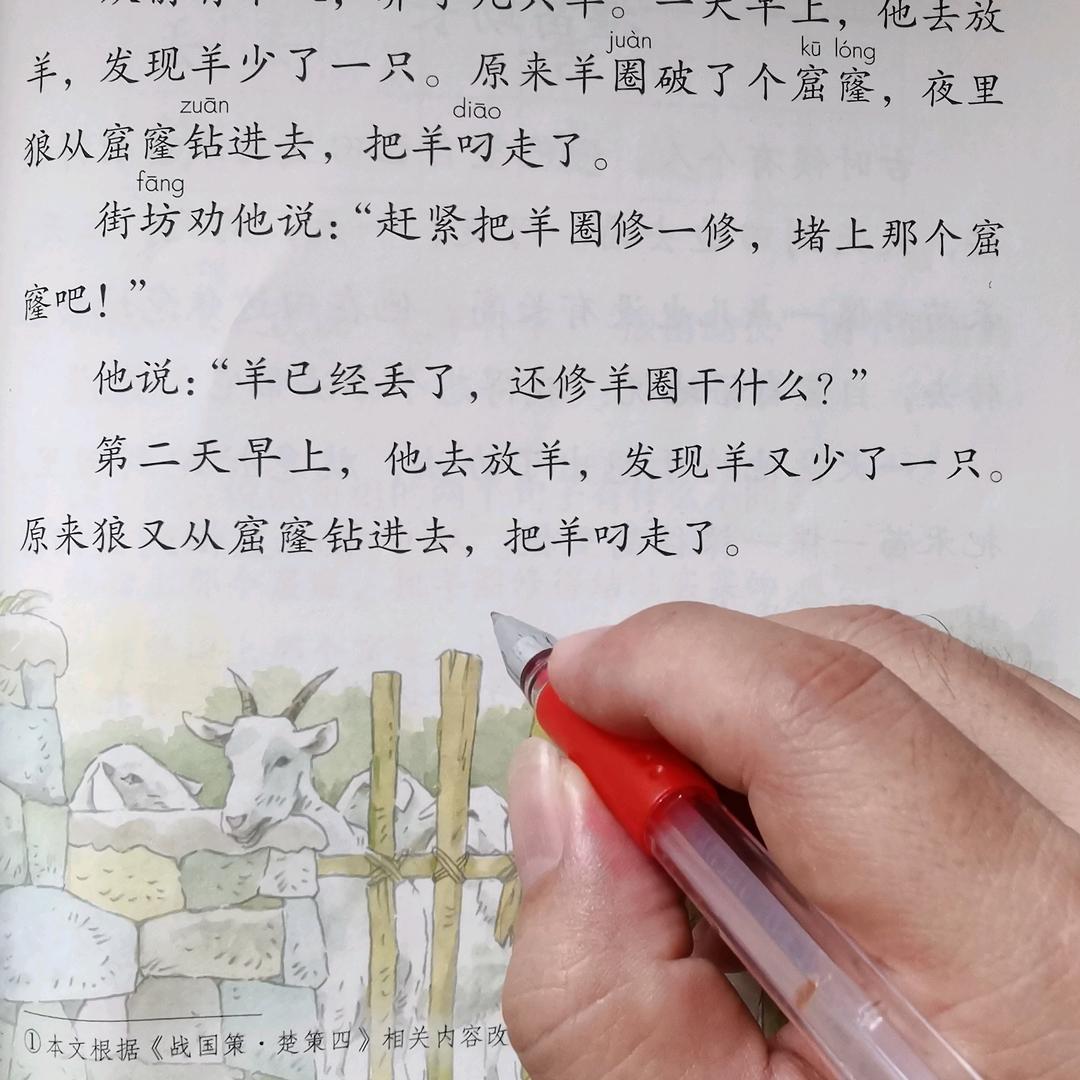 一天早上，他去放
juàn kū lóng
羊，发现羊少了一只。原来羊圈破了个窟窿，夜里
zuān diāo
狼从窟窿钻进去，把羊叼走了。
fāng
街坊劝他说：“赶紧把羊圈修一修，堵上那个窟
窿吧！”
他说：“羊已经丢了，还修羊圈干什么？”
第二天早上，他去放羊，发现羊又少了一只。
原来狼又从窟窿钻进去，把羊叼走了。
①本文根据《战国策·楚策四》相关内容改